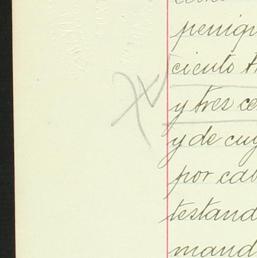 peniq
ciento tr
y tres ce
y de cuy
por cab
testand
mand